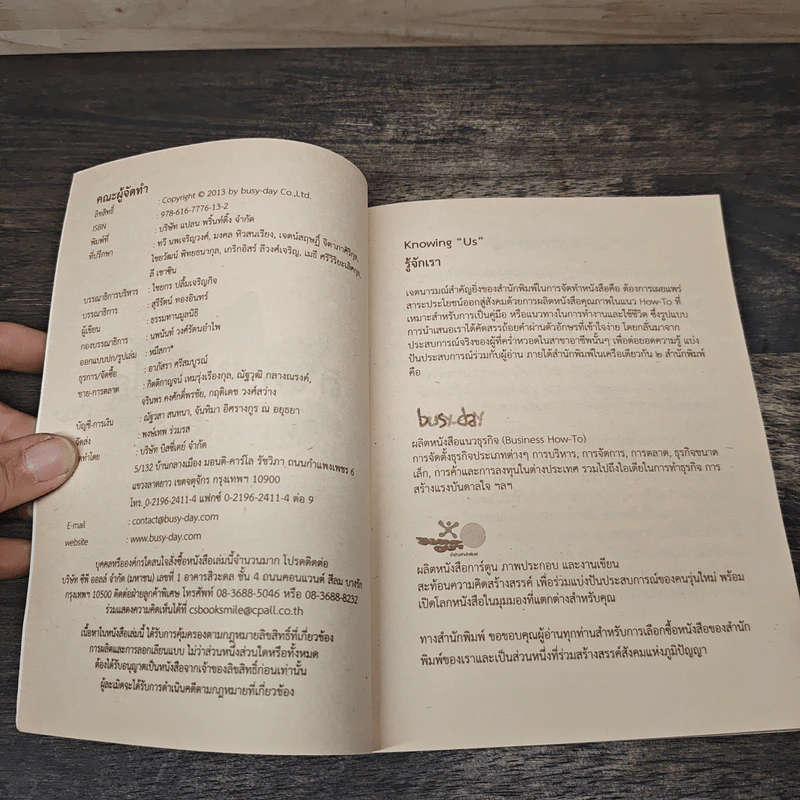 คณะผู้จัดทำ
ลิขสิทธิ์ : Copyright © 2013 by busy-day Co.,Ltd.
ISBN : 978-616-7776-13-2
พิมพ์ที่ : บริษัท แปลน พริ้นท์ติ้ง จำกัด
ที่ปรึกษา : ทวี นพเจริญวงศ์, มงคล ทิวสนเรียง, เจตน์สฤษฎิ์
ไชยวัฒน์ พิทยธนากุล, เกริกอิสร์ ลีวงศ์เจริญ, เมธี
ลี เขาชิน
บรรณาธิการบริหาร : ไชยกร ปลื้มเจริญกิจ
บรรณาธิการ : สุรีรัตน์ ทองอินทร์
ผู้เขียน : ธรรมทานมูลนิธิ
กองบรรณาธิการ : นพนันท์ วงศ์รัตนอำไพ
ออกแบบปก/รูปเล่ม : หมีสกา*
ธุรการ/จัดซื้อ : อาภัสรา ศรีสมบูรณ์
ขาย-การตลาด : กิตติกาญจน์ เหมรุ่งเรืองกุล, ณัฐวุฒิ กลางณรงค์,
จรินพร คงศักดิ์พรชัย, กฤติเดช วงศ์สว่าง
บัญชี-การเงิน : ณัฐวสา สนทนา, จันทิมา อิศรางกูร ณ อยุธยา
จัดส่ง : พงษ์เทพ ร่วมรส
: บริษัท บิสซี่เดย์ จำกัด
5/132 บ้านกลางเมือง มอนติ-คาร์โล รัชวิภา ถนนกำแพงเพชร 6
แขวงลาดยาว เขตจตุจักร กรุงเทพฯ 10900
โทร. 0-2196-2411-4 แฟกซ์ 0-2196-2411-4 ต่อ 9
E-mail : contact@busy-day.com
website : www.busy-day.com
บุคคลหรือองค์กรใดสนใจสั่งซื้อหนังสือเล่มนี้จำนวนมาก โปรดติดต่อ
บริษัท ซีพี ออลล์ จำกัด (มหาชน) เลขที่ 1 อาคารสิวะดล ชั้น 4 ถนนคอนแวนต์ สีลม บางรัก
กรุงเทพฯ 10500 ติดต่อฝ่ายลูกค้าพิเศษ โทรศัพท์ 08-3688-5046 หรือ 08-3688-8232
ร่วมแสดงความคิดเห็นได้ที่ csbooksmile@cpall.co.th
เนื้อหาในหนังสือเล่มนี้ ได้รับการคุ้มครองตามกฎหมายลิขสิทธิ์ที่เกี่ยวข้อง
การผลิตและการลอกเลียนแบบ ไม่ว่าส่วนหนึ่งส่วนใดหรือทั้งหมด
ต้องได้รับอนุญาตเป็นหนังสือจากเจ้าของลิขสิทธิ์ก่อนเท่านั้น
ผู้ละเมิดจะได้รับการดำเนินคดีตามกฎหมายที่เกี่ยวข้อง
Knowing “Us”
รู้จักเรา
เจตนารมณ์สำคัญยิ่งของสำนักพิมพ์ในการจัดทำหนังสือคือ ต้องการเผยแพร่
สาระประโยชน์ออกสู่สังคมด้วยการผลิตหนังสือคุณภาพในแนว How-To ที่
เหมาะสำหรับการเป็นคู่มือ หรือแนวทางในการทำงานและใช้ชีวิต ซึ่งรูปแบบ
การนำเสนอเราได้คัดสรรถ้อยคำผ่านตัวอักษรที่เข้าใจง่าย โดยกลั่นมาจาก
ประสบการณ์จริงของผู้ที่คร่ำหวอดในสาขาอาชีพนั้นๆ เพื่อต่อยอดความรู้ แบ่ง
ปันประสบการณ์ร่วมกับผู้อ่าน ภายใต้สำนักพิมพ์ในเครือเดียวกัน ๒ สำนักพิมพ์
คือ
busy-day
ผลิตหนังสือแนวธุรกิจ (Business How-To)
การจัดตั้งธุรกิจประเภทต่างๆ การบริหาร, การจัดการ, การตลาด, ธุรกิจขนาด
เล็ก, การค้าและการลงทุนในต่างประเทศ รวมไปถึงไอเดียในการทำธุรกิจ การ
สร้างแรงบันดาลใจ ฯลฯ
ผลิตหนังสือการ์ตูน ภาพประกอบ และงานเขียน
สะท้อนความคิดสร้างสรรค์ เพื่อร่วมแบ่งปันประสบการณ์ของคนรุ่นใหม่ พร้อม
เปิดโลกหนังสือในมุมมองที่แตกต่างสำหรับคุณ
ทางสำนักพิมพ์ ขอขอบคุณผู้อ่านทุกท่านสำหรับการเลือกซื้อหนังสือของสำนัก
พิมพ์ของเราและเป็นส่วนหนึ่งที่ร่วมสร้างสรรค์สังคมแห่งภูมิปัญญา